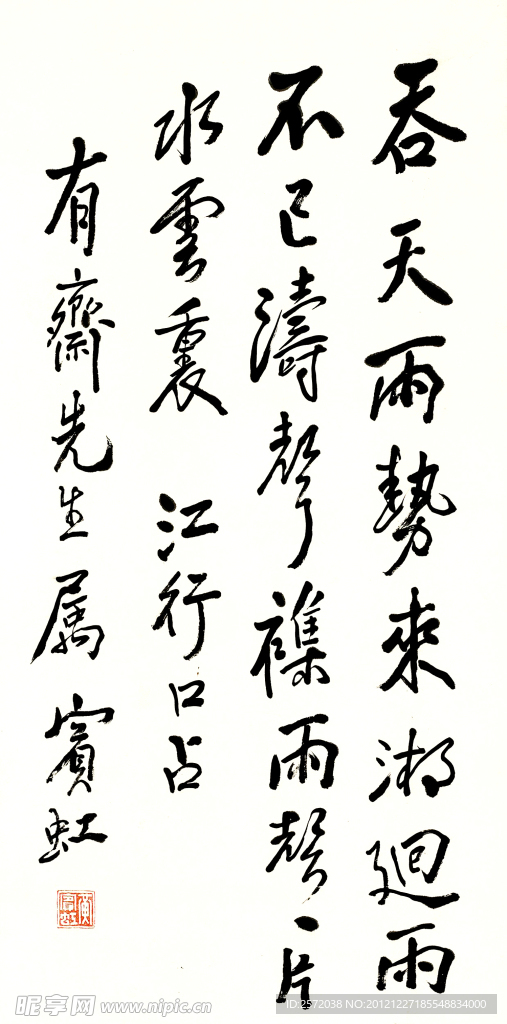 吞天雨勢來迴雨
不已濤聲襍雨聲一片
水雲裏 江行口占
有齋先生屬 賓虹
黃賓虹
昵享网 www.nipic.cn
ID:2572038 NO:20121227185548834000